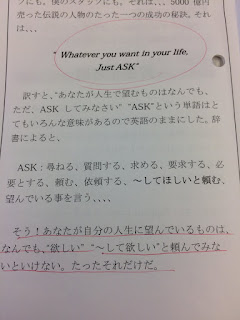 フにも。僕のスタッフにも。それは、、、5000 億円
売った伝説の人物のたった一つの成功の秘訣。それ
は、、、
“ Whatever you want in your life,
Just ASK”
訳すと、“あなたが人生で望むものはなんでも、
ただ、ASK してみなさい” “ASK”という単語はと
てもいろんな意味があるので英語のままにした。辞
書によると、
ASK：尋ねる、質問する、求める、要求する、必
要とする、頼む、依頼する、～してほしいと頼む、
望んでいる事を言う、、、、
そう！あなたが自分の人生に望んでいるものは、
なんでも、“欲しい” “～して欲しい”と頼んでみな
いといけない。たったそれだけだ。